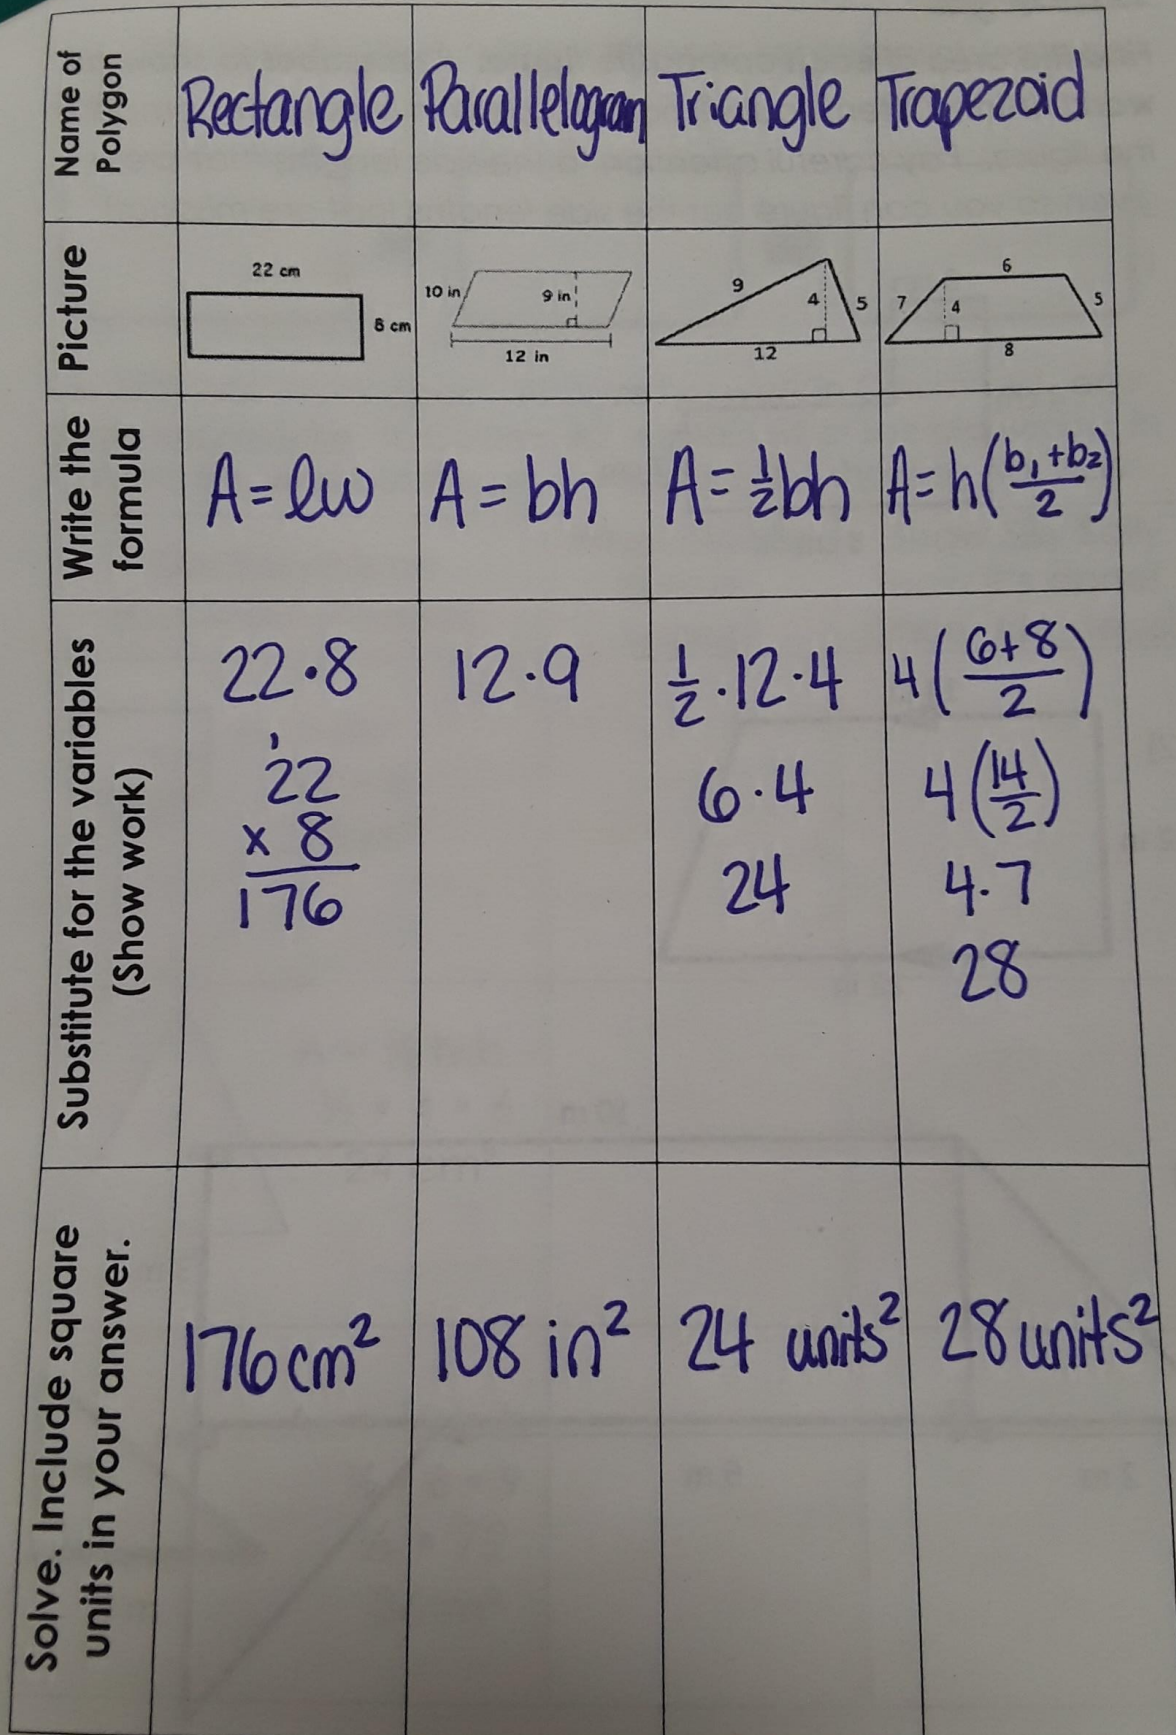 Name of
Polygon
Rectangle
Parallelogram
Triangle
Trapezoid
Picture
22 cm
8 cm
10 in
9 in
12 in
9
4
5
12
6
7
4
5
8
Write the
formula
A = lw
A = bh
A = 1/2 bh
A = h(b₁+b₂/2)
Substitute for the variables
(Show work)
22·8
1
22
x 8
176
12·9
1/2·12·4
6·4
24
4(6+8/2)
4(14/2)
4·7
28
Solve. Include square
units in your answer.
176 cm²
108 in²
24 units²
28 units²